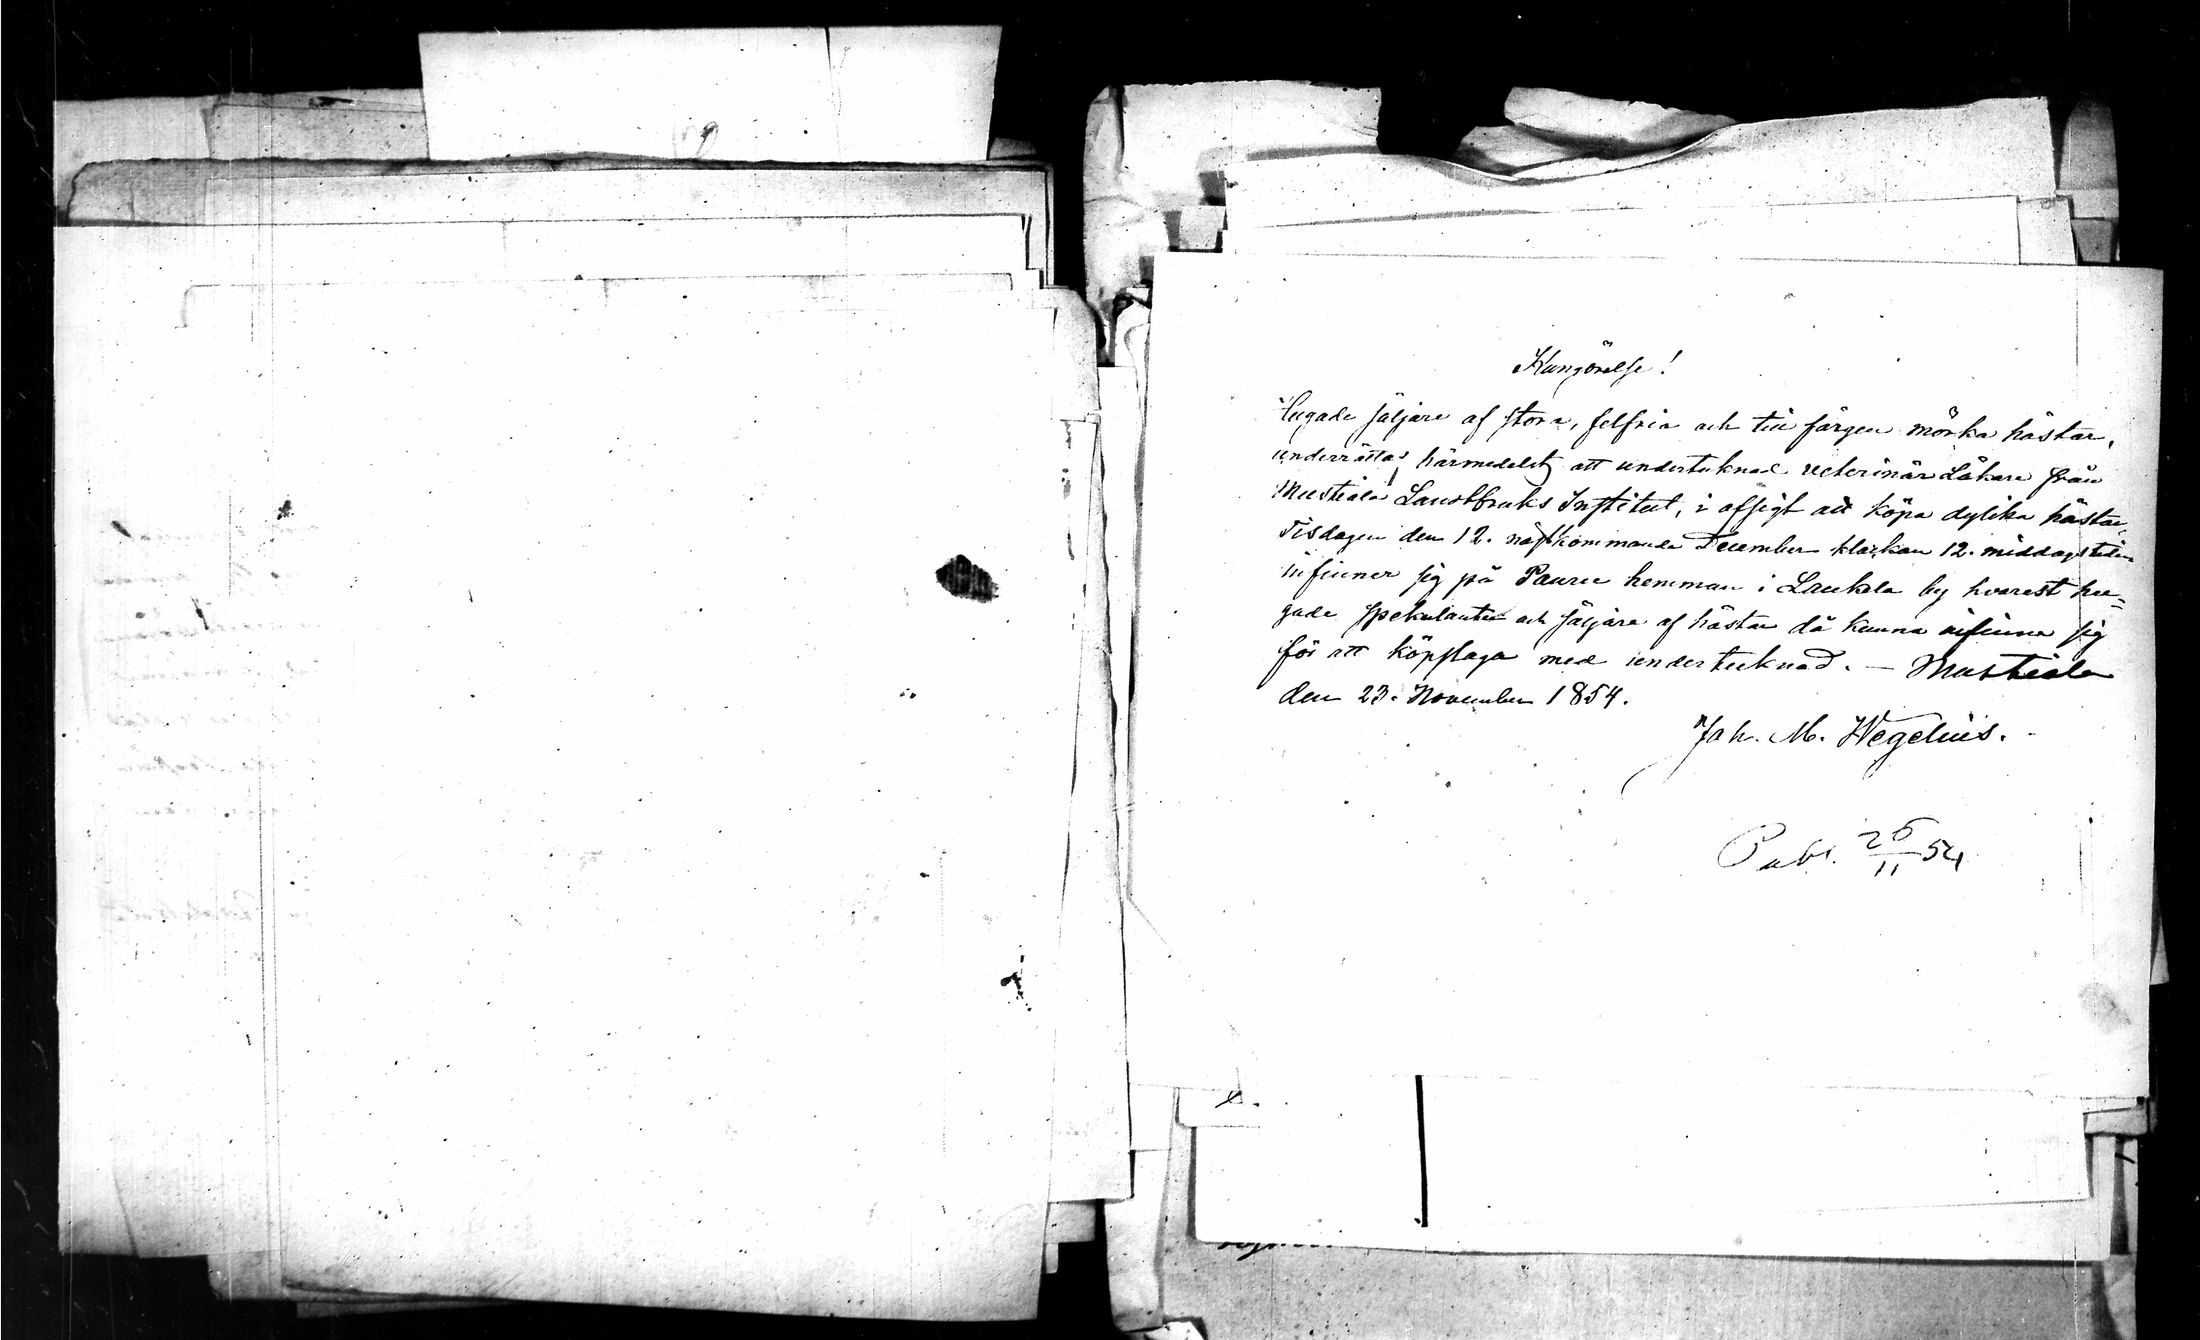 Kungörelse!
Hugade säljare af stora, felfria och till färgen mörka hästar,
underrättas härmedelst att undertecknad veterinär Läkare från
Mustiala Landtbruks Institut, i afsigt att köpa dylika hästar
Tisdagen den 12. nästkommande December klockan 12. middagstiden
infinner sig på Pauru hemman i Laukela by hvarest hu=
gade spekulanter och säljare af hästar då kunna infinna sig
för att köpslaga med undertecknad. — Mustiala
den 23. November 1854.
Joh. M. Wegelius.
Publ. 26/11 54